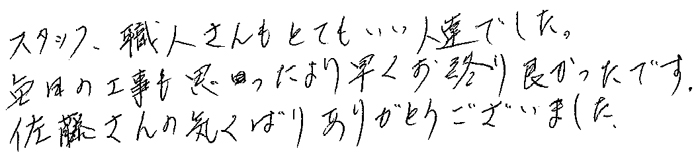 スタッフ、職人さんもとてもいい人達でした。
毎日の工事も思ったより早くお終り良かったです。
佐藤さんの気くばりありがとうございました。